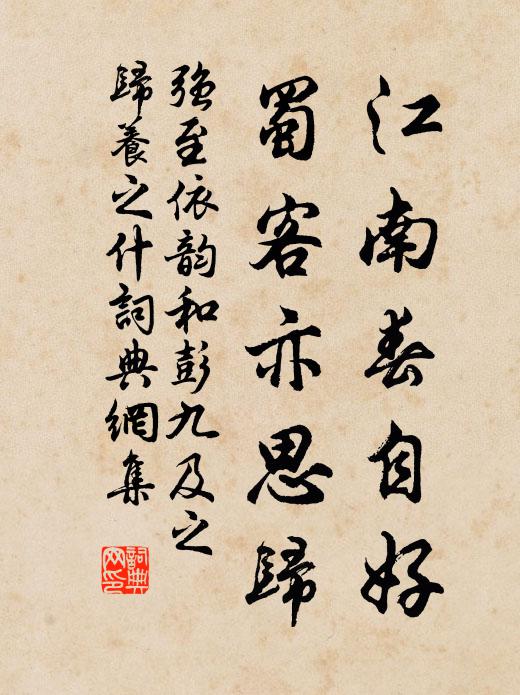 江南春自好
蜀客亦思歸
強至依韵和彭九及之
歸養之什詞典網集
詞典网印